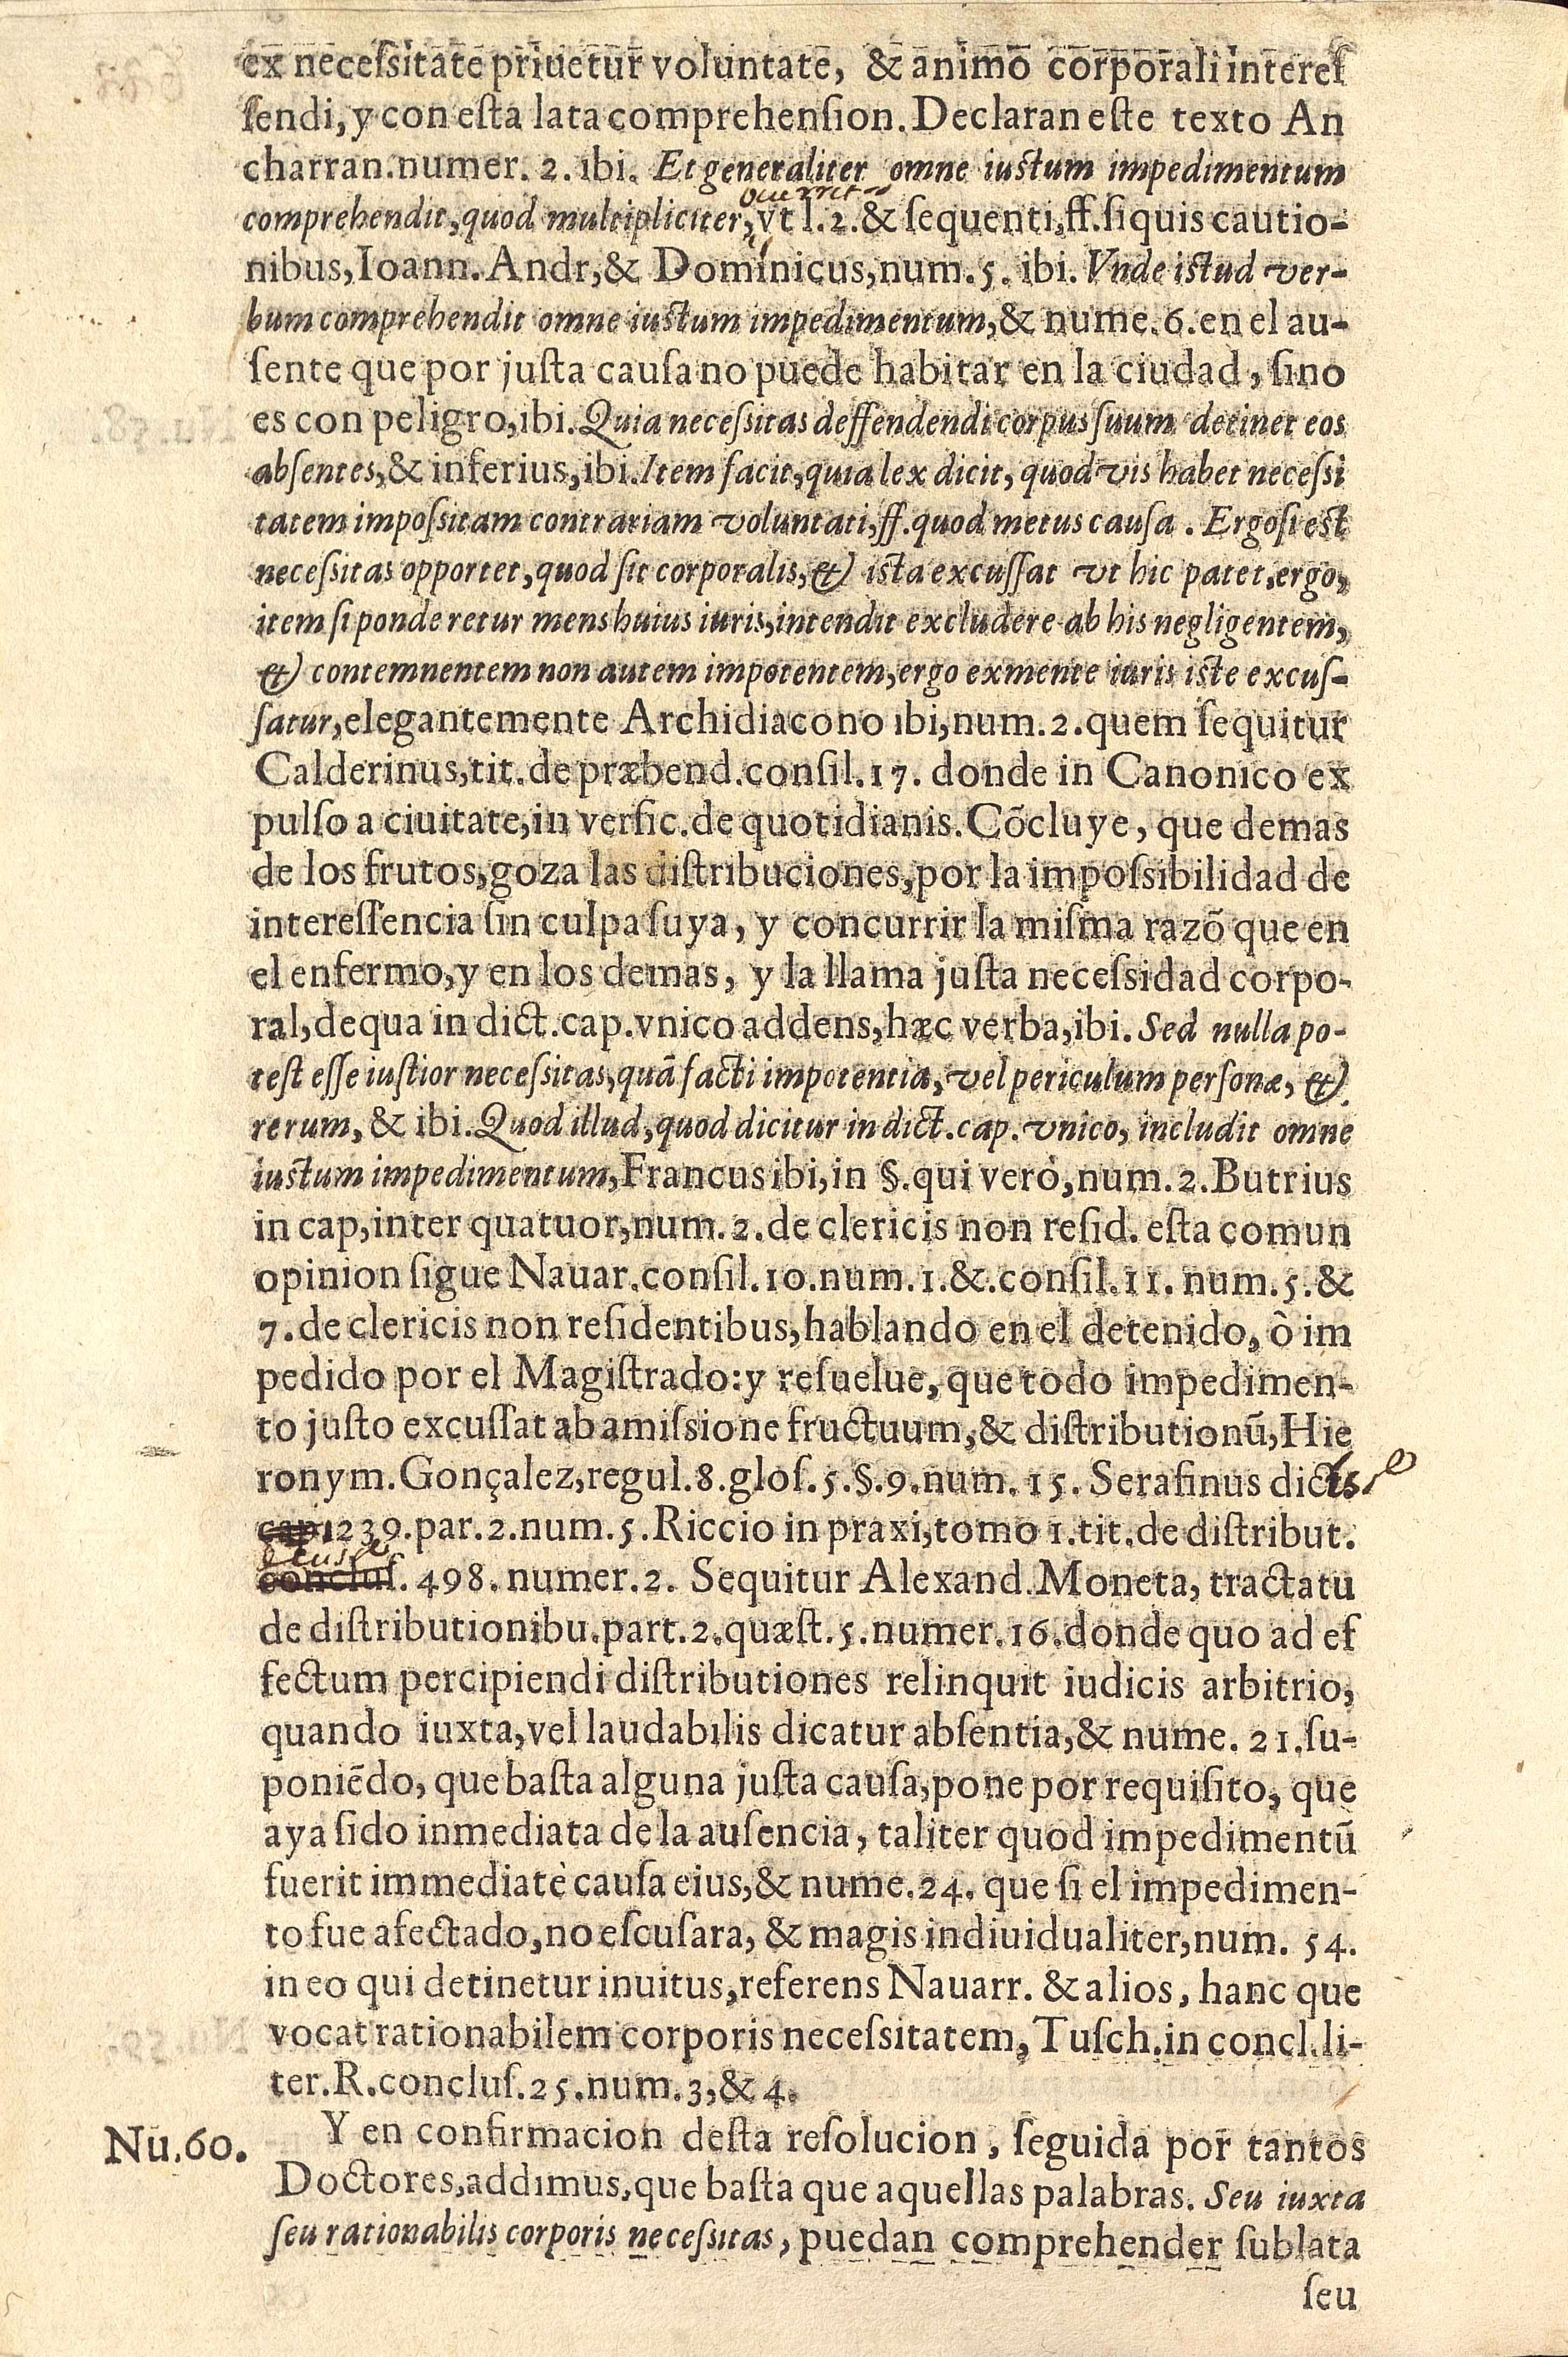 ex neceſsitate priuetur voluntate, & animo corporali intereſ
ſendi, y con eſta lata comprehenſion. Declaran eſte texto An
charran.numer. 2. ibi. Et generaliter omne iustum impedimentum
comprehendit, quod multipliciter, vt l.2.& ſequenti, ff.ſiquis cautio-
nibus, Ioann. Andr, & Dominicus, num.5. ibi. Vnde istud ver-
bum comprehendit omne iustum impedimentum, & nume.6.en el au-
ſente que por juſta cauſa no puede habitar en la ciudad, ſino
es con peligro, ibi. Quia neceſsitas deffendendi corpus ſuum detinet eos
abſentes, & inferius, ibi. Item facit, quia lex dicit, quod vis habet neceſsi
tatem impoſsitam contrariam voluntati, ff.quod metus cauſa. Ergo ſi est
neceſsitas opportet, quod ſit corporalis, & ista excuſſat vt hic patet, ergo,
item ſi ponderetur mens huius iuris, intendit excludere ab his negligentem,
& contemnentem non autem impotentem, ergo ex mente iuris iste excuſ-
ſatur, elegantemente Archidiacono ibi, num.2. quem ſequitur
Calderinus, tit. de præbend.conſil.17. donde in Canonico ex
pulſo a ciuitate, in verſic.de quotidianis. Cõcluye, que demas
de los frutos, goza las diſtribuciones, por la impoſsibilidad de
intereſſencia ſin culpa ſuya, y concurrir la miſma razõ que en
el enfermo, y en los demas, y la llama juſta neceſsidad corpo-
ral, dequa in dict.cap.vnico addens, hæc verba, ibi. Sed nulla po-
teſt eſſe iuſtior neceſsitas, quã facti impotentia, vel periculum perſonæ, &
rerum, & ibi. Quod illud, quod dicitur in dict.cap.vnico, includit omne
iustum impedimentum, Francus ibi, in §.qui verò, num.2. Butrius
in cap, inter quatuor, num.2.de clericis non reſid. eſta comun
opinion ſigue Nauar.conſil.10.num.1.&.conſil.11. num.5.&
7.de clericis non reſidentibus, hablando en el detenido, ò im
pedido por el Magiſtrado: y reſuelue, que todo impedimen-
to juſto excuſſat ab amiſsione fructuum, & diſtributionũ, Hie
ronym. Gonçalez, regul.8.gloſ.5.§.9.num.15. Serafinus
1239.par.2.num.5. Riccio in praxi, tomo 1.tit.de diſtribut.
concluſ. 498. numer.2. Sequitur Alexand. Moneta, tractatu
de diſtributionibu.part.2.quæſt.5.numer.16.donde quo ad ef
fectum percipiendi diſtributiones relinquit iudicis arbitrio,
quando iuxta, vel laudabilis dicatur abſentia, & nume. 21.ſu-
poniẽdo, que baſta alguna juſta cauſa, pone por requiſito, que
aya ſido inmediata de la auſencia, taliter quod impedimentũ
fuerit immediatè cauſa eius, & nume.24. que ſi el impedimen-
to fue afectado, no eſcuſara, & magis indiuidualiter, num. 54.
in eo qui detinetur inuitus, referens Nauarr. & alios, hanc que
vocat rationabilem corporis neceſsitatem, Tuſch.in concl.li-
ter.R.concluſ.25.num.3, & 4.
Nũ.60. Y en confirmacion deſta reſolucion, ſeguida por tantos
Doctores, addimus, que baſta que aquellas palabras. Seu iuxta
ſeu rationabilis corporis neceſsitas, puedan comprehender ſublata
ſeu